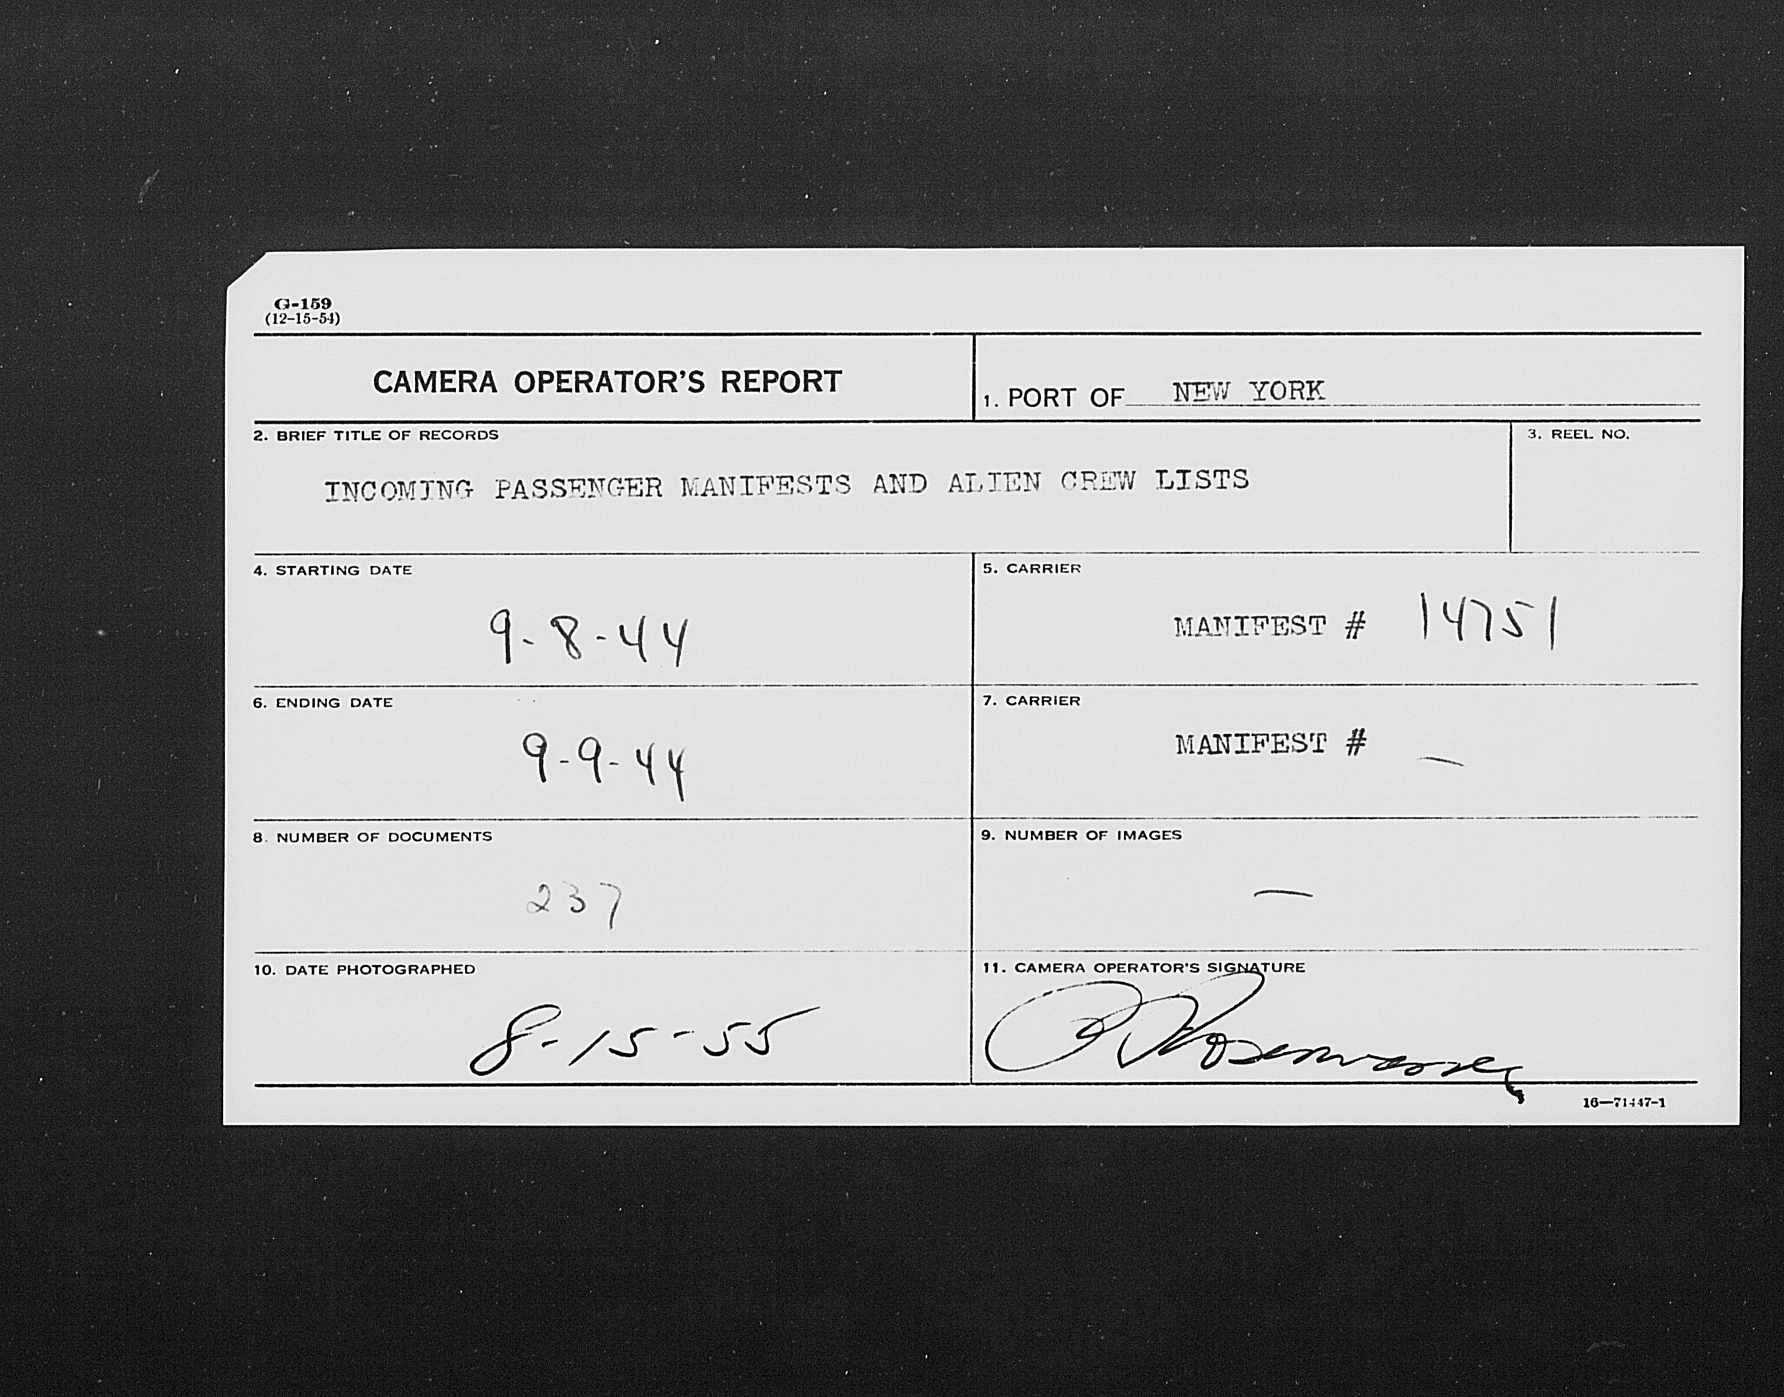 G-159
(12-15-54)
CAMERA OPERATOR'S REPORT
1. PORT OF NEW YORK
2. BRIEF TITLE OF RECORDS
3. REEL NO.
INCOMING PASSENGER MANIFESTS AND ALIEN CREW LISTS
4. STARTING DATE
5. CARRIER
9-8-44
MANIFEST # 14751
6. ENDING DATE
7. CARRIER
9-9-44
MANIFEST # —
8. NUMBER OF DOCUMENTS
9. NUMBER OF IMAGES
237
—
10. DATE PHOTOGRAPHED
11. CAMERA OPERATOR'S SIGNATURE
8-15-55
16—71447-1